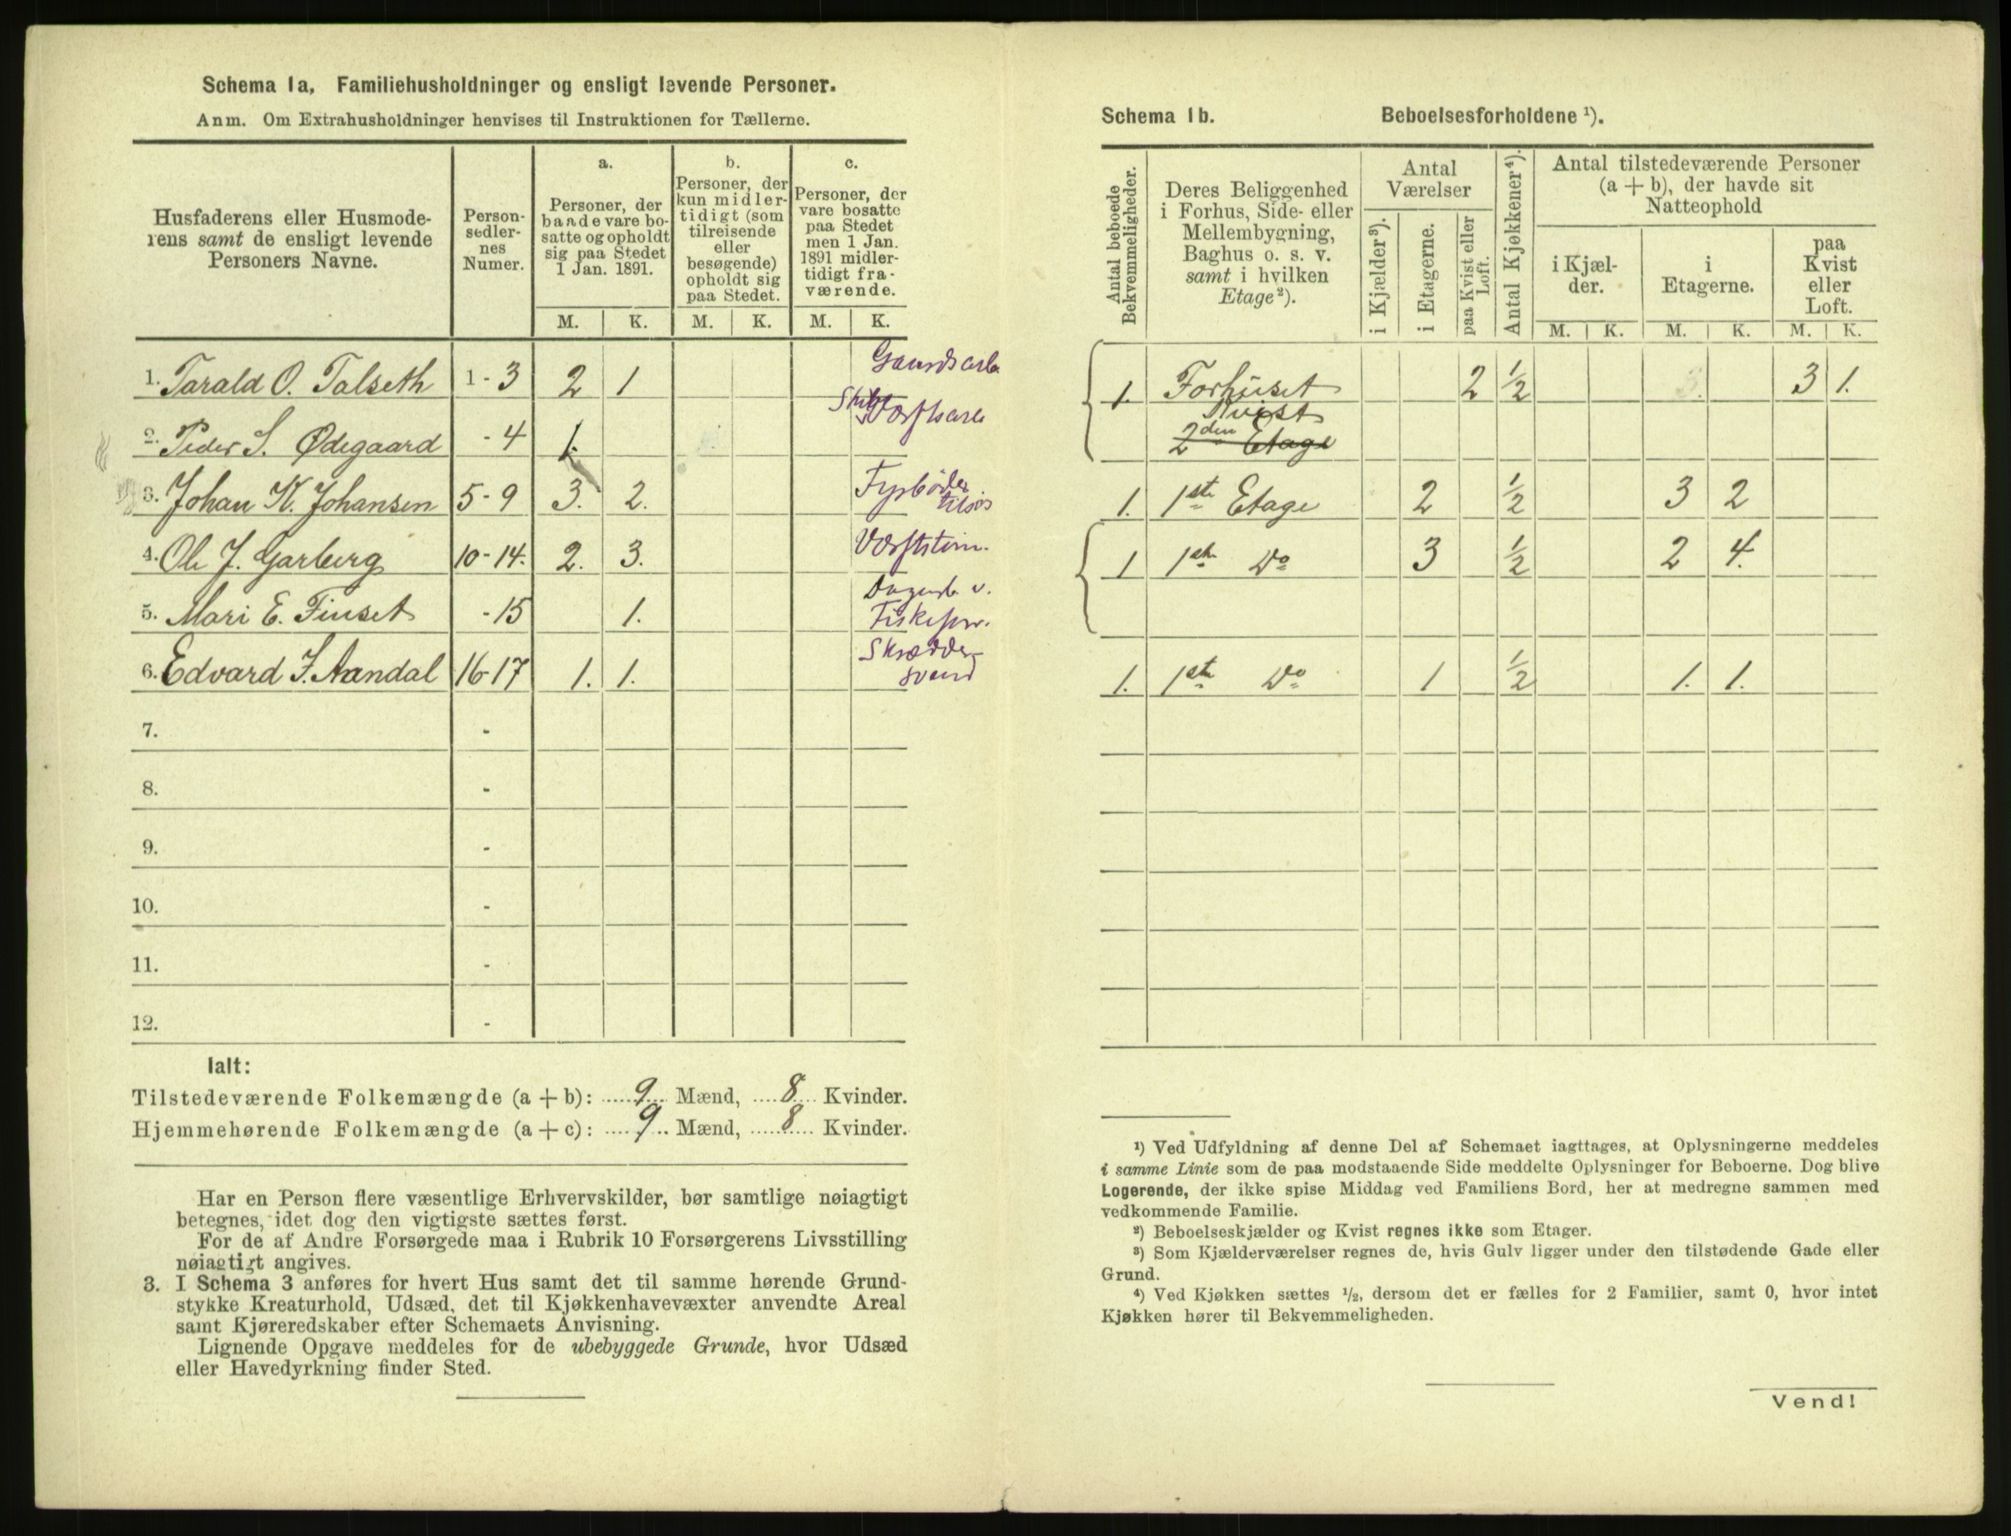 Schema 1a, Familiehusholdninger og ensligt levende Personer.
Anm. Om Extrahusholdninger henvises til Instruktionen for Tællerne.
Husfaderens eller Husmode-
rens samt de ensligt levende
Personers Navne.
Person-
sedler-
nes
Numer.
a.
Personer, der
baade vare bo-
satte og opholdt
sig paa Stedet
1 Jan. 1891.
b.
Personer, der
kun midler-
tidigt (som
tilreisende
eller
besøgende)
opholdt sig
paa Stedet.
c.
Personer, der
vare bosatte
paa Stedet
men 1 Jan.
1891 midler-
tidigt fra-
værende.
M. K. M. K. M. K.
1. Tarald O. Talseth 1 - 3 2 1
2. Peder S. Ødegaard - 4 1.
3. Johan K. Johansen 5 - 9 3. 2.
Fyrbøder
tilsøs
4. Ole J. Garberg 10 - 14. 2. 3.
5. Mari E. Finset - 15 1.
6. Edvard J. Aandal 16-17 1. 1.
Skrædder-
svend
7. -
8. -
9. -
10. -
11. -
12. -
Ialt:
Tilstedeværende Folkemængde (a + b): 9 Mænd, 8 Kvinder.
Hjemmehørende Folkemængde (a + c): 9 Mænd, 8 Kvinder.
Har en Person flere væsentlige Erhvervskilder, bør samtlige nøiagtigt
betegnes, idet dog den vigtigste sættes først.
For de af Andre Forsørgede maa i Rubrik 10 Forsørgerens Livsstilling
nøiagtigt angives.
3. I Schema 3 anføres for hvert Hus samt det til samme hørende Grund-
stykke Kreaturhold, Udsæd, det til Kjøkkenhavevæxter anvendte Areal
samt Kjøreredskaber efter Schemaets Anvisning.
Lignende Opgave meddeles for de ubebyggede Grunde, hvor Udsæd
eller Havedyrkning finder Sted.
Schema 1b. Beboelsesforholdene ¹).
Antal beboede
Bekvemmeligheder.
Deres Beliggenhed
i Forhus, Side- eller
Mellembygning,
Baghus o. s. v.
samt i hvilken
Etage ²).
Antal
Værelser
i Kjælder ³).
i Etagerne.
paa Kvist eller
Loft.
Antal Kjøkkener ⁴).
Antal tilstedeværende Personer
(a + b), der havde sit
Natteophold
i Kjæl-
der.
i
Etagerne.
paa
Kvist
eller
Loft.
M. K. M. K. M. K.
1. Forhuset 2 ½ 3 1.
Kvist
2den Etage
1. 1ste Etage 2 ½ 3 2
1 1ste Do 3 ½ 2 4.
1. 1ste Do 1 ½ 1. 1.
¹) Ved Udfyldning af denne Del af Schemaet iagttages, at Oplysningerne meddeles
i samme Linie som de paa modstaaende Side meddelte Oplysninger for Beboerne. Dog blive
Logerende, der ikke spise Middag ved Familiens Bord, her at medregne sammen med
vedkommende Familie.
²) Beboelseskjælder og Kvist regnes ikke som Etager.
³) Som Kjælderværelser regnes de, hvis Gulv ligger under den tilstødende Gade eller
Grund.
⁴) Ved Kjøkken sættes ½, dersom det er fælles for 2 Familier, samt 0, hvor intet
Kjøkken hører til Bekvemmeligheden.
Vend!